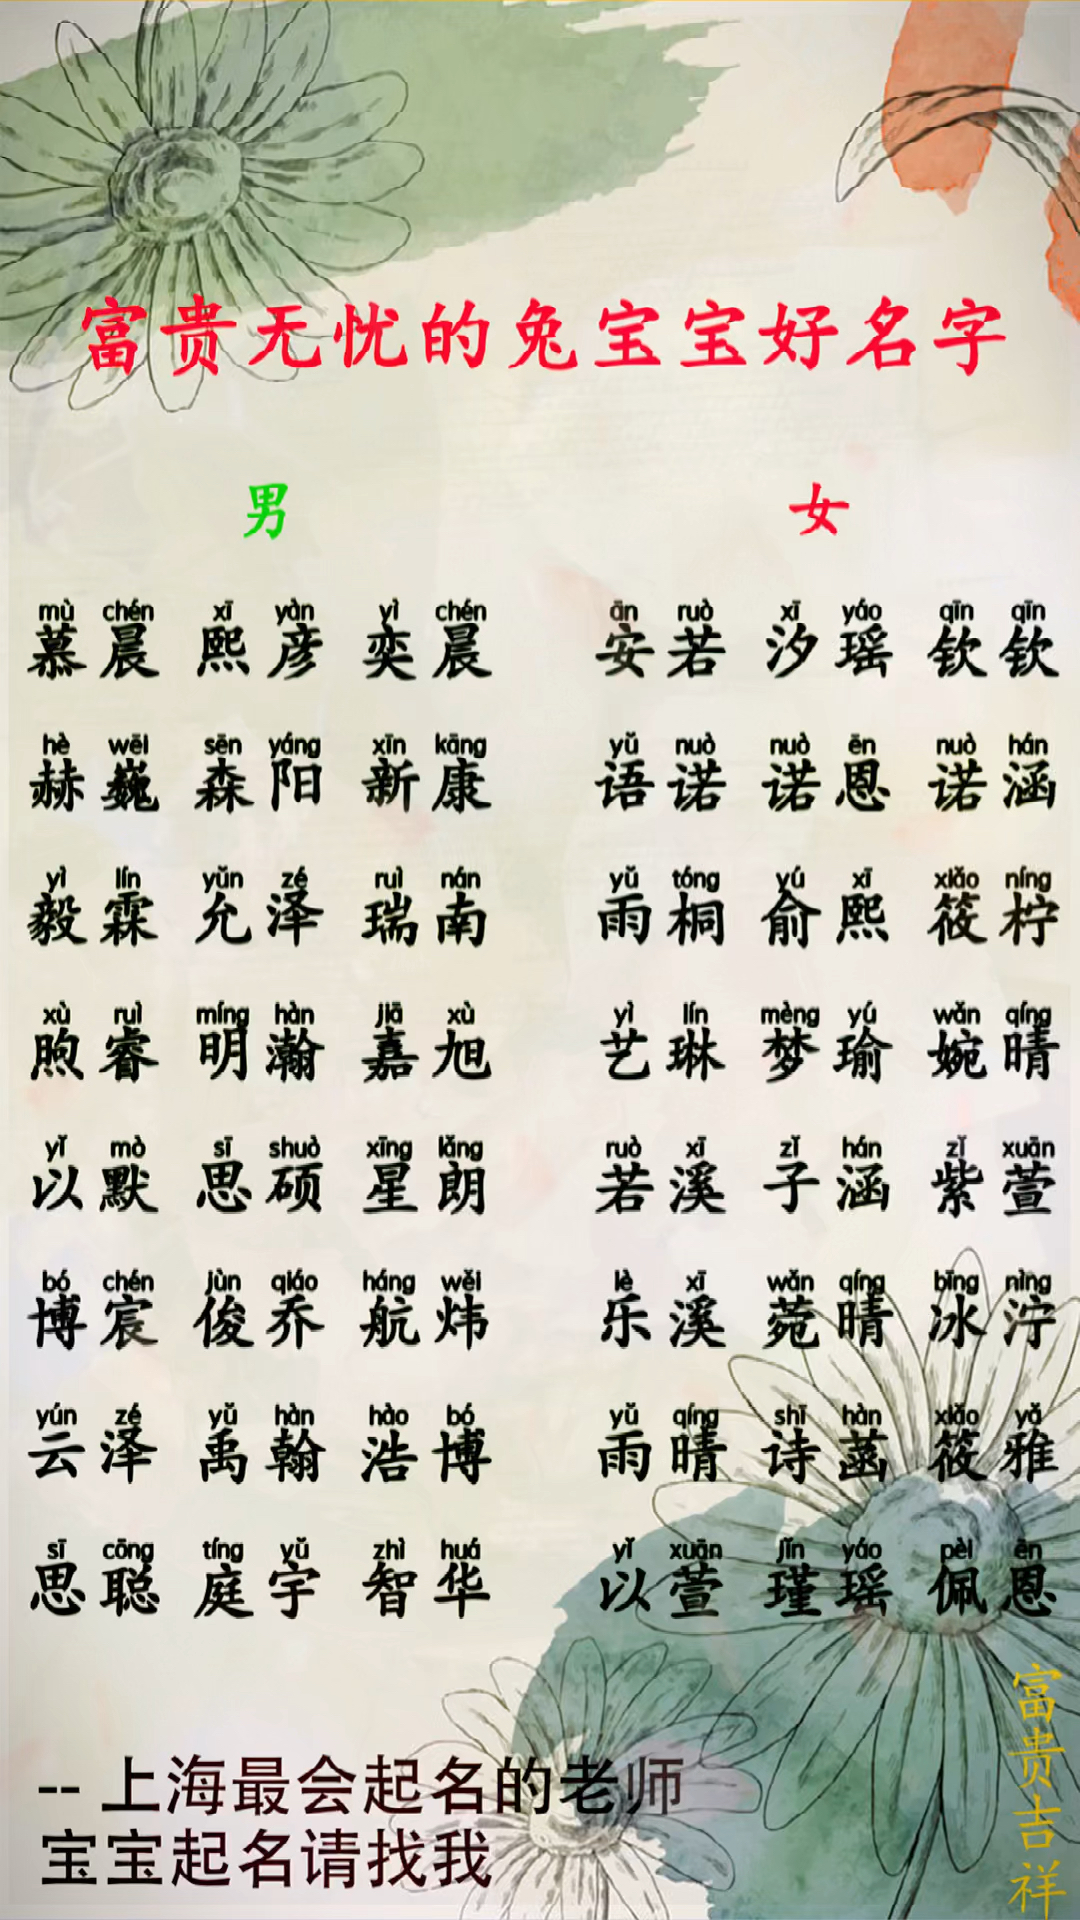 富贵无忧的兔宝宝好名字
男 女
mù chén xī yàn yì chén ān ruò xī yáo qīn qīn
慕晨 熙彦 奕晨 安若 汐瑶 钦钦
hè wēi sēn yáng xīn kāng yǔ nuò nuò ēn nuò hán
赫巍 森阳 新康 语诺 诺恩 诺涵
yì lín yǔn zé ruì nán yǔ tóng yú xī xiǎo níng
毅霖 允泽 瑞南 雨桐 俞熙 筱柠
xù ruì míng hàn jiā xù yì lín mèng yú wǎn qíng
煦睿 明瀚 嘉旭 艺琳 梦瑜 婉晴
yǐ mò sī shuò xīng lǎng ruò xī zǐ hán zǐ xuān
以默 思硕 星朗 若溪 子涵 紫萱
bó chén jùn qiáo háng wěi lè xī wǎn qíng bīng nìng
博宸 俊乔 航炜 乐溪 菀晴 冰泞
yún zé yǔ hàn hào bó yǔ qíng shī hàn xiǎo yǎ
云泽 禹翰 浩博 雨晴 诗菡 筱雅
sī cōng tíng yǔ zhì huá yǐ xuān jǐn yáo pèi ēn
思聪 庭宇 智华 以萱 瑾瑶 佩恩
-- 上海最会起名的老师
宝宝起名请找我
富贵吉祥